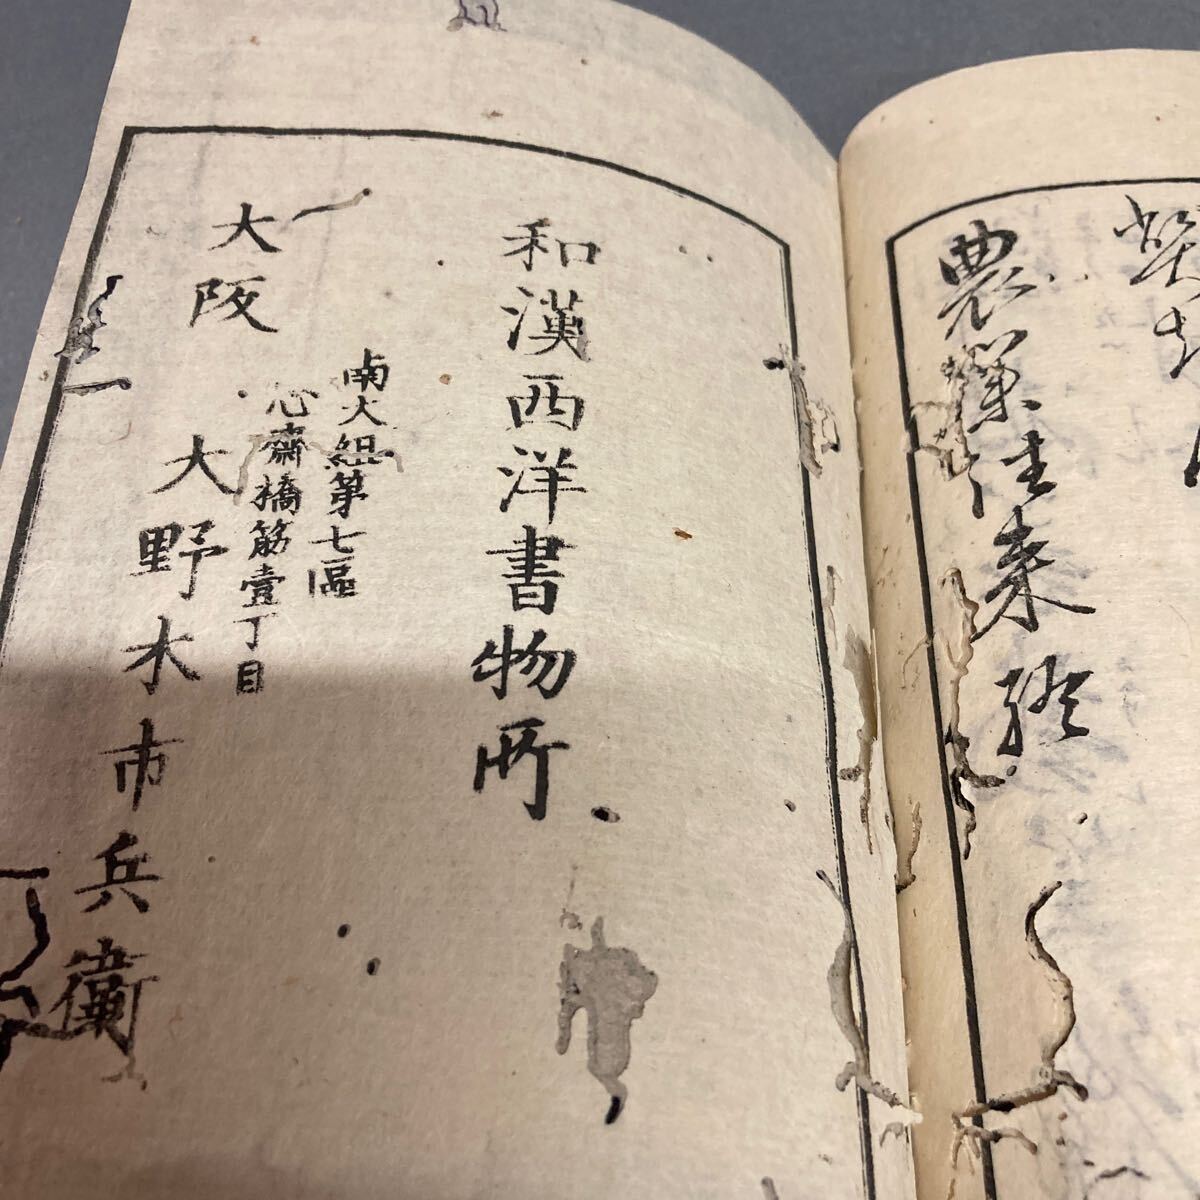 農業往来 終
和漢西洋書物所
大阪
南大組第七區
心齋橋筋壹丁目
大野木市兵衛